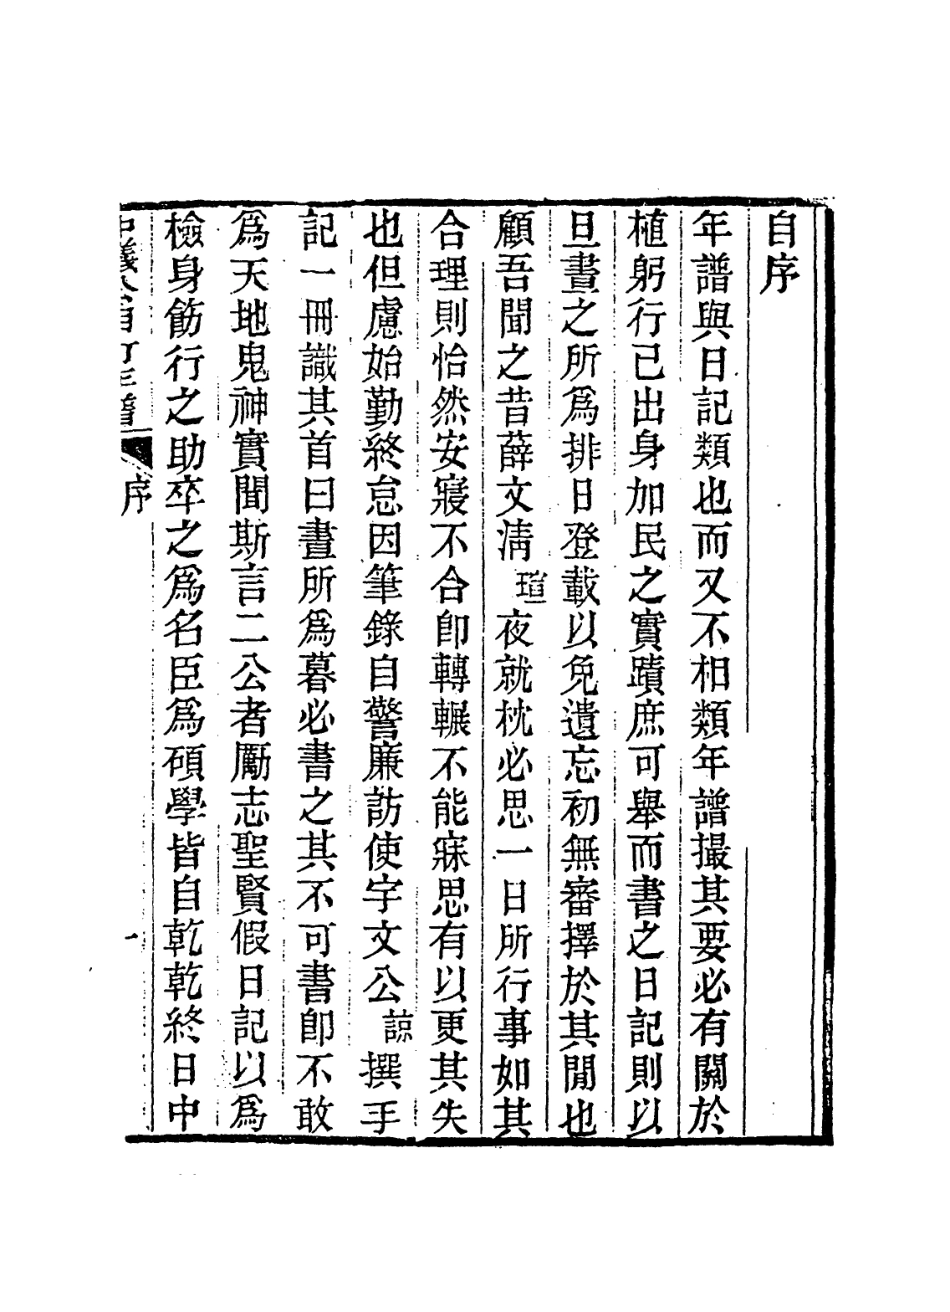 自序
年譜與日記類也而又不相類年譜撮其要必有關於
植躬行已出身加民之實蹟庶可舉而書之日記則以
旦晝之所爲排日登載以免遺忘初無審擇於其閒也
顧吾聞之昔薛文淸瑄夜就枕必思一日所行事如其
合理則怡然安寢不合卽轉輾不能寐思有以更其失
也但慮始勤終怠因筆錄自警廉訪使宇文公諒撰手
記一冊識其首曰晝所爲暮必書之其不可書卽不敢
爲天地鬼神實聞斯言二公者勵志聖賢假日記以爲
檢身飭行之助卒之爲名臣爲碩學皆自乾乾終日中
自訂年譜
序
一